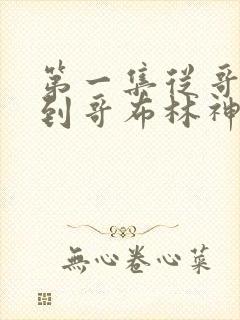 第一集從哥
到哥布林神
無心卷心菜